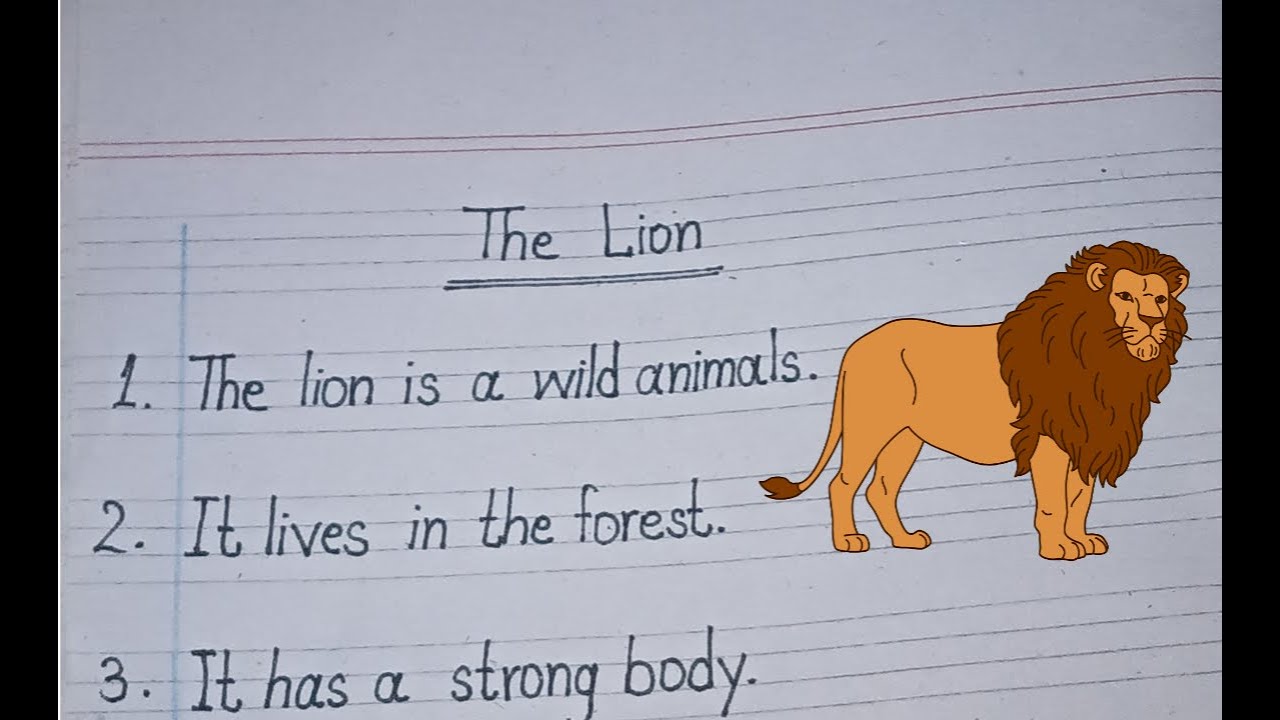 The Lion
1. The lion is a wild animals.
2. It lives in the forest.
3. It has a strong body.